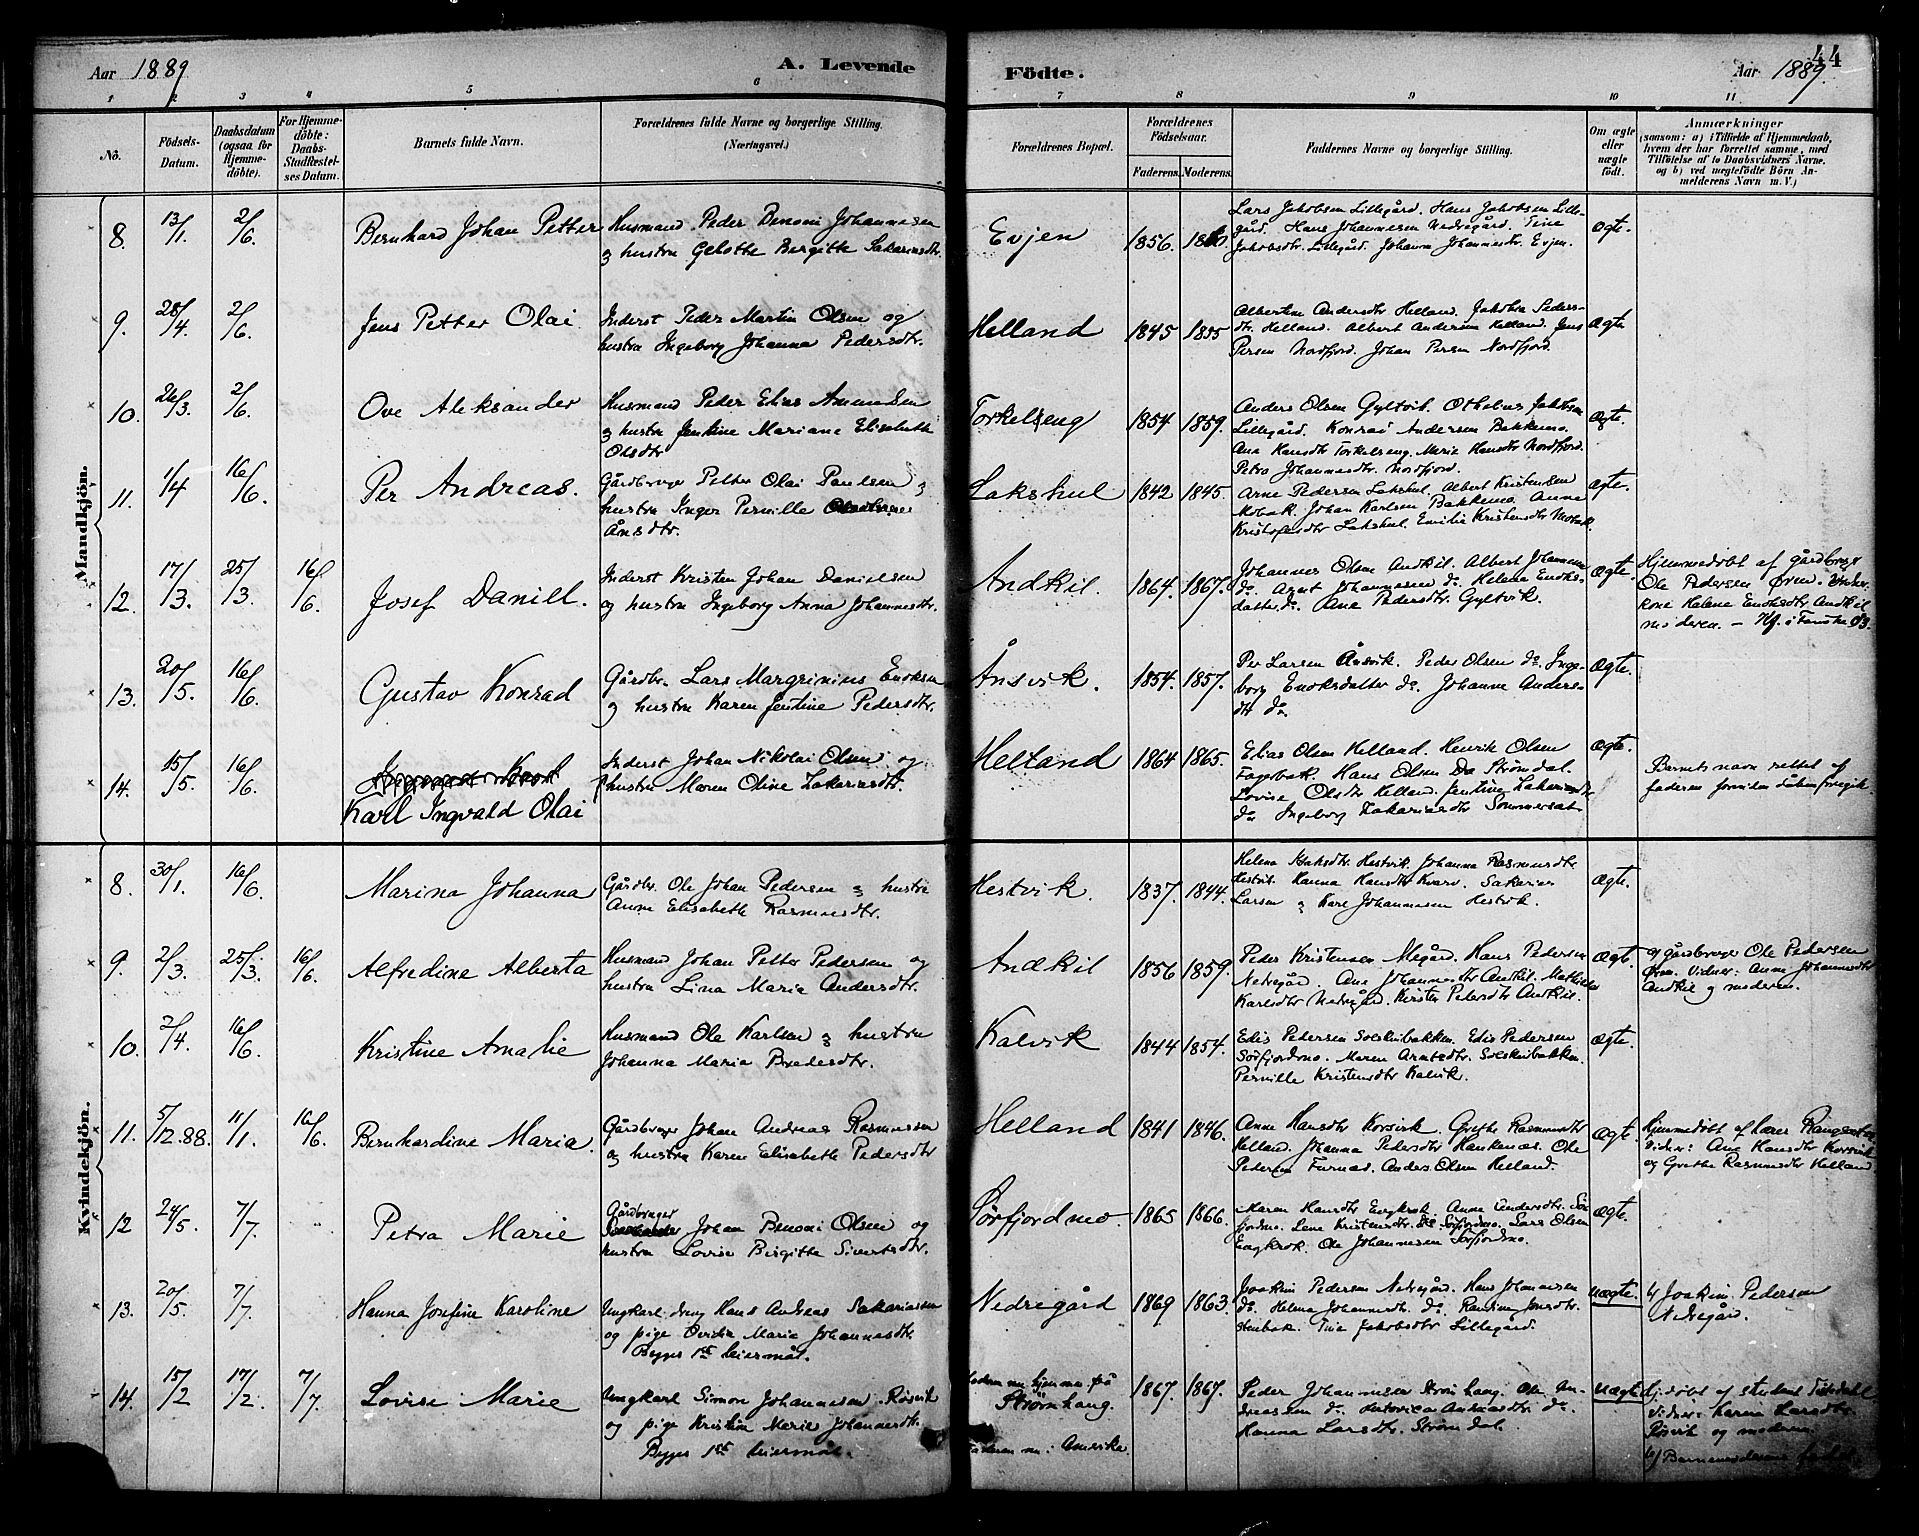 44
Aar 1889
A. Levende
Födte.
Aar 1889.
1 2 3 4 5 6 7 8 9 10 11
No.
Födsels-
Datum.
Daabsdatum
(ogsaa for
Hjemme-
döbte).
For Hjemme-
döbte:
Daabs-
Stadfæstel-
ses Datum.
Barnets fulde Navn.
Forældrenes fulde Navne og borgerlige Stilling.
(Næringsvei.)
Forældrenes Bopæl.
Forældrenes
Födselsaar.
Faderens. Moderens.
Faddernes Navne og borgerlige Stilling.
Om ægte
eller
uægte
födt.
Anmærkninger
(saasom: a) i Tilfælde af Hjemmedaab,
hvem der har forrettet samme, med
Tilföielse af to Daabsvidners Navne.
og b) ved uægtefödte Börn An-
melderens Navn m. V.)
Mandkjön.
8. 13/1. 2/6. Bernhard Johan Petter
Husmand Peder Benoni Johannesen
og hustru Gelotte Birgitte Sakariasdtr.
Evjen 1856. 1860.
Lars Jakobsen Lillegård. Hans Jakobsen Lille-
gård. Hans Johannesen Nedregård. Tine
Jakobsdtr. Lillegård. Johanna Johannesdtr. Evjen.
Ægte.
9. 28/4. 2/6. Jens Petter Olai
Inderst Peder Martin Olsen og
hustru Ingeborg Johanna Pedersdtr.
Helland 1845 1855
Albertine Andersdtr Helland. Jakobea Peders-
dtr. Helland. Albert Andersen Helland. Jens
Persen Nordfjord. Johan Persen Nordfjord.
Ægte
10. 26/3. 2/6. Ove Aleksander
Husmand Peder Elias Amundsen
og hustru Jentine Mariane Elisabeth
Olsdtr
Torkelseng 1854. 1859.
Anders Olsen Gyltvik. Othelius Jakobsen
Lillegård. Konrad Andersen Bakkemo.
Ana Hansdtr Torkelseng. Marie Hansdtr Nordfjord.
Petra Johannesdtr. Nordfjord.
Ægte.
11. 1/4 16/6. Per Andreas.
Gårdbruger Petter Olai Paulsen og
hustru Inger Pernille
Ånsdtr.
Lakshul 1842 1845.
Arne Pedersen Lakshul. Albert Kristensen
Mobak. Johan Karlsen Bakkemo. Anne
Kristofersdtr Lakshul. Emilie Kristensdtr Mobak.
Ægte.
12. 17/3. 25/3. 16/6. Josef Daniel.
Inderst Kristen Johan Danielsen
og hustru Ingeborg Anna Johannesdtr.
Andkil. 1864. 1867.
Johannes Olsen Andkil. Albert Johannesen
do. Arnt Johannesen do. Helena Enoks-
datter do. Ane Pedersdtr. Gyltvik.
Ægte.
Hjemmedöbt af gårdbruger
Ole Pedersen Øren. Vidner:
kone Helene Enoksdtr Andkil
moderen.
13. 20/5. 16/6. Gustav Konrad
Gårdbr. Lars Margrinius Enoksen
og hustru Karen Jentine Pedersdtr.
Ånsvik. 1854. 1857.
Per Larsen Ånsvik. Peder Olsen do. Inge-
borg Enoksdatter do. Johanna Anders-
dtr do.
Ægte.
14. 15/5. 16/6.
Karl Ingvald Olai
Inderst Johan Nikolai Olsen og
hustru Maren Oline Zakariasdtr.
Helland 1864 1865.
Elias Olsen Helland. Henrik Olsen
Fagerbak. Hans Olsen Da Strömdal.
Lovise Olsdtr Helland. Jentine Zakariasdtr
do. Ingeborg Zakariasdtr Sommerset
Ægte.
Barnets navn rettet af
faderen
Kvindekjön.
8. 30/1. 16/6. Marina Johanna
Gårdbr. Ole Johan Pedersen og hustru
Anne Elisabeth Rasmusdtr.
Hestvik. 1837. 1844.
Helena Isaksdtr. Hestvik. Johanna Rasmusdtr.
Hestvik. Hanna Hansdtr Kvarv. Sakarias
Larsen og Karl Johannesen Hestvik.
Ægte.
9. 2/3. 25/3. 16/6. Alfredine Alberta
Husmand Johan Petter Pedersen og
hustru Lina Maria Andersdtr.
Andkil 1856 1859.
Peder Kristensen Megård. Hans Pedersen
Nedregård. Ane Johannesdtr Andkil. Mathilda
Karlsdtr Nedregård. Kirsten Pedersdtr Andkil.
Ægte.
af gårdbruger Ole Pedersen
Øren. Vidner: Anne Johannesdtr
Andkil og moderen.
10. 2/4. 16/6. Kristine Amalie
Husmand Ole Karlsen og hustru
Johanna Maria Pedersdtr.
Kalvik 1844 1854.
Edis Pedersen Solskinbakken. Edis Pedersen
Sörfjordmo. Maren Arntsdtr. Solskinbakken.
Pernille Kristensdtr Kalvik.
Ægte.
11. 5/12.88. 11/1. 16/6. Bernhardine Maria.
Gårdbruger Johan Andreas Rasmussen
og hustru Karen Elisabeth Pedersdtr
Helland 1841 1846.
Anne Hansdtr Korsvik. Grethe Rasmusdtr
Helland. Johanna Pedersdtr Haukenæs. Ole
Pedersen Furnæs. Anders Olsen Helland.
Ægte.
Hjemmedöbt af lærer
Vidner: Ane Hansdtr Korsvik
og Grethe Rasmusdtr Helland
12 24/5. 7/7. Petra Marie
Gårdbruger
Johan Benoni Olsen og
hustru Lovise Birgitte Sivertsdtr.
Sørfjordmo. 1865 1866.
Maren Hansdtr Engkrok. Anne Andersdtr. Sör-
fjordmo. Lene Kristensdtr. Sörfjordmo. Lars Olsen
Engkrok. Ole Johannesen Sörfjordmo.
Ægte.
13. 20/5. 7/7. Hanna Josefine Karoline
Ungkarl dreng Hans Andreas Sakariassen
og pige Ovidia Maria Johannesdtr
Begges 1st leiermål.
Nedregård 1869 1863.
Joakim Pedersen Nedregård. Hans Johannesen
do. Helena Johannesdtr. do. Randine Jonsdtr.
Stenbak. Tine Jakobsdtr Lillegård.
Uægte.
b/ Joakim Pedersen
Nedregård.
14. 15/2 17/2. 7/7. Lovise Marie
Ungkarl Simon Johannesen Røsvik
og pige Kristine Marie Johannesdtr.
Begges 1st leiermål.
Moderen nu hjemme på
Strømhaug.
Faderen nu: Amerika
1867. 1867.
Peder Johannesen Strömhaug. Ole An-
dreassen do. Ludovica Antonsdtr do.
Hanna Larsdtr Strömdal.
Uægte
Hj.döbt af student
Vidner: Karen Larsdtr.
Røsvik og moderen.
b/ Barnemoderens